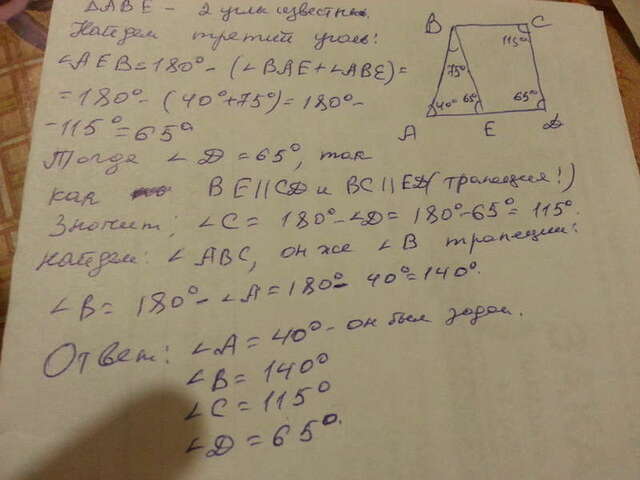 ΔABE - 2 углы известны.
Найдем третий угол:
∠AEB=180°-(∠BAE+∠ABE)=
=180°-(40°+75°)=180°-
-115°=65°
Тогда ∠D=65°, так
как BE||CD и BC||ED(трапеция!)
Значит, ∠C=180°-∠D=180°-65°=115°.
Найдем: ∠ABC, он же ∠B трапеции:
∠B=180°-∠A=180°-40°=140°.
Ответ: ∠A=40°- он был задан.
∠B=140°
∠C=115°
∠D=65°.
B C
115°
75°
40° 65° 65°
A E D